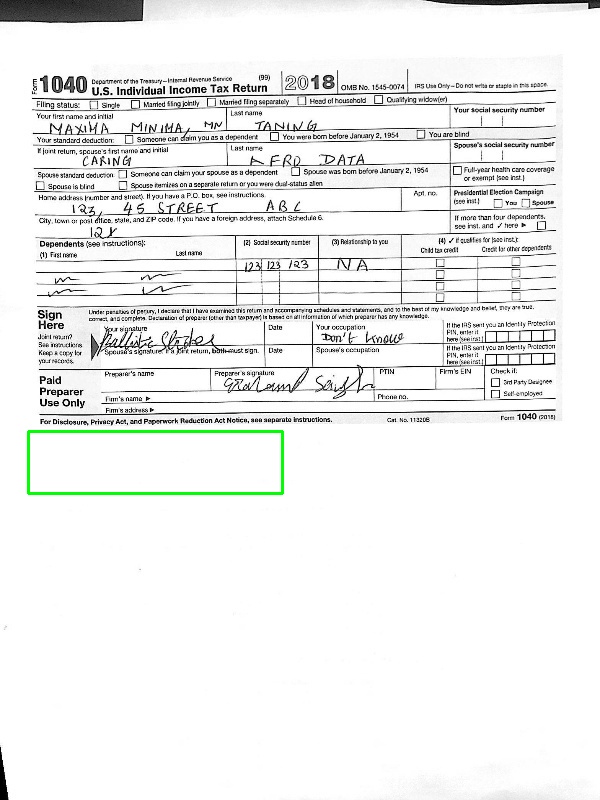 Form 1040 Department of the Treasury—Internal Revenue Service (99) U.S. Individual Income Tax Return 2018 OMB No. 1545-0074 IRS Use Only—Do not write or staple in this space.
Filing status: Single Married filing jointly Married filing separately Head of household Qualifying widow(er)
Your first name and initial Last name Your social security number
MAXIMA MINIMA, MN TANING
Your standard deduction: Someone can claim you as a dependent You were born before January 2, 1954 You are blind
If joint return, spouse's first name and initial Last name Spouse's social security number
CARING FRD DATA
Spouse standard deduction: Someone can claim your spouse as a dependent Spouse was born before January 2, 1954 Full-year health care coverage
Spouse is blind Spouse itemizes on a separate return or you were dual-status alien or exempt (see inst.)
Home address (number and street). If you have a P.O. box, see instructions. Apt. no. Presidential Election Campaign
123, 45 STREET ABC (see inst.) You Spouse
City, town or post office, state, and ZIP code. If you have a foreign address, attach Schedule 6. If more than four dependents,
see inst. and ✓ here ►
Dependents (see instructions): (2) Social security number (3) Relationship to you (4) ✓ if qualifies for (see inst.):
(1) First name Last name Child tax credit Credit for other dependents
123 123 123 NA
Sign Here Under penalties of perjury, I declare that I have examined this return and accompanying schedules and statements, and to the best of my knowledge and belief, they are true,
correct, and complete. Declaration of preparer (other than taxpayer) is based on all information of which preparer has any knowledge.
Joint return? See instructions. Keep a copy for your records.
Your signature Date Your occupation If the IRS sent you an Identity Protection PIN, enter it here (see inst.)
Don't know
Spouse's signature. If a joint return, both must sign. Date Spouse's occupation If the IRS sent you an Identity Protection PIN, enter it here (see inst.)
Paid Preparer Use Only
Preparer's name Preparer's signature PTIN Firm's EIN Check if:
3rd Party Designee
Firm's name ► Phone no. Self-employed
Firm's address ►
For Disclosure, Privacy Act, and Paperwork Reduction Act Notice, see separate instructions. Cat. No. 11320B Form 1040 (2018)